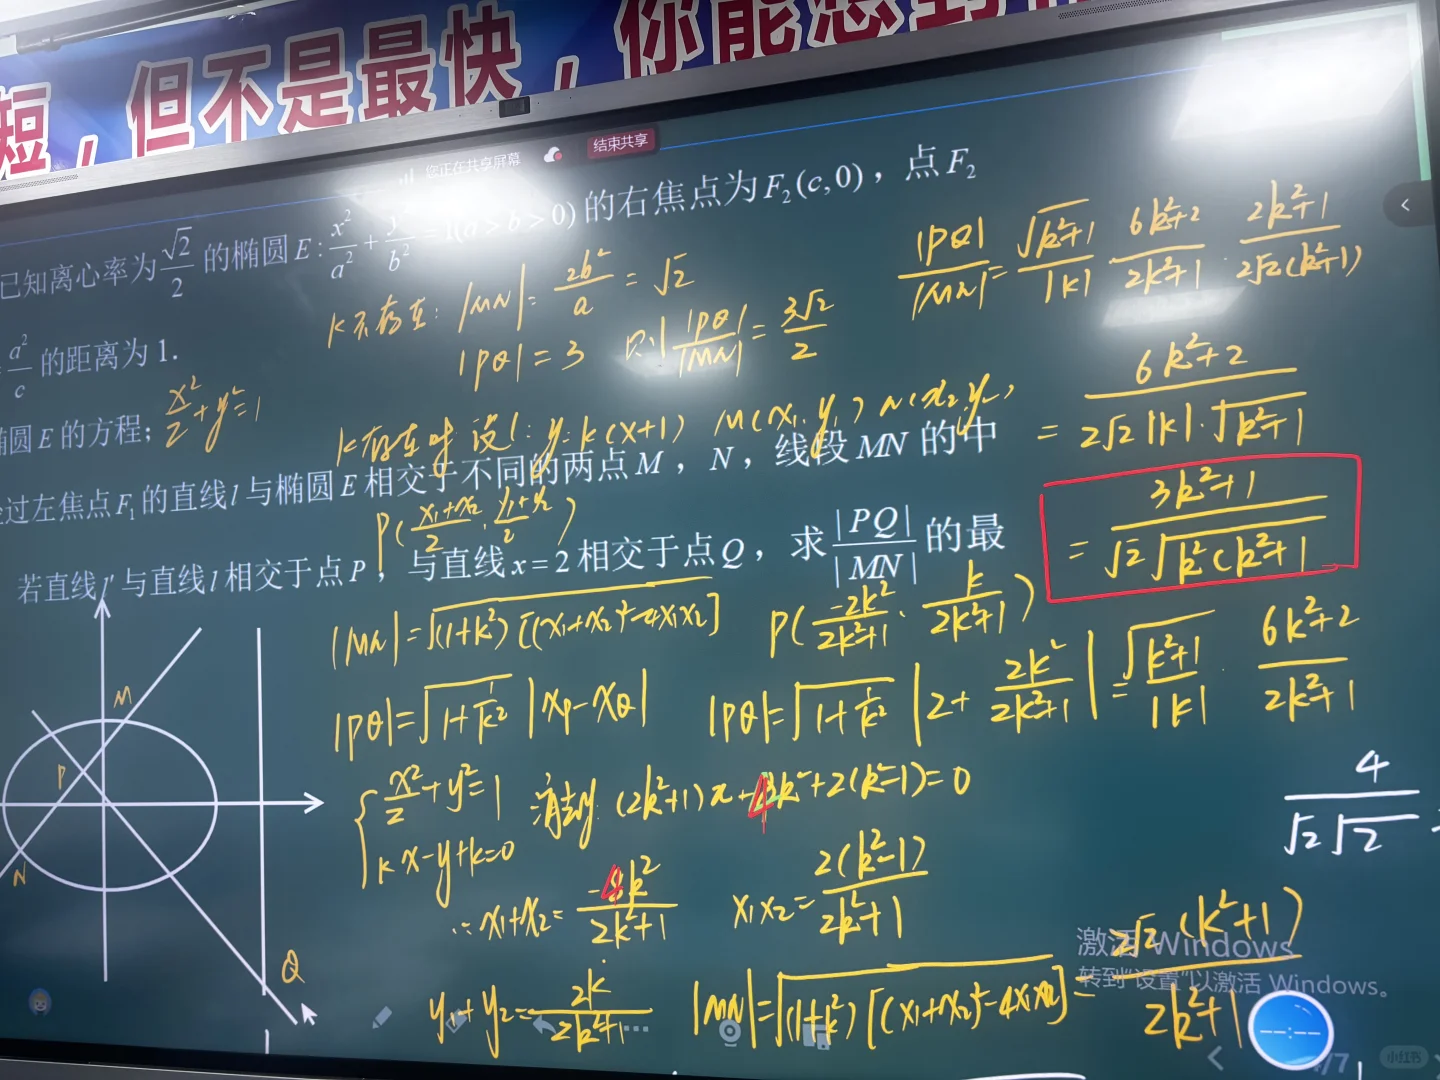 短，但不是最快，你能想到
您正在共享屏幕 结束共享
已知离心率为 \frac{\sqrt{2}}{2} 的椭圆 E : \frac{x^2}{a^2} + \frac{y^2}{b^2} = 1(a > b > 0) 的右焦点为 F_2(c, 0)，点 F_2
\frac{a^2}{c} 的距离为 1.
椭圆 E 的方程; \frac{x^2}{2} + y^2 = 1
k不存在: |MN| = \frac{2b^2}{a} = \sqrt{2}
|PQ| = 3 则 \frac{|PQ|}{|MN|} = \frac{3\sqrt{2}}{2}
k存在时 设l: y=k(x+1) M(x_1, y_1) N(x_2, y_2)
过左焦点 F_1 的直线 l 与椭圆 E 相交于不同的两点 M，N，线段 MN 的中
P(\frac{x_1+x_2}{2}, \frac{y_1+y_2}{2})
若直线 l' 与直线 l 相交于点 P，与直线 x = 2 相交于点 Q，求 \frac{|PQ|}{|MN|} 的最
|MN| = \sqrt{(1+k^2)[(x_1+x_2)^2-4x_1x_2]} P(\frac{-2k^2}{2k^2+1}, \frac{k}{2k^2+1})
|PQ| = \sqrt{1+\frac{1}{k^2}} |x_P-x_Q| |PQ| = \sqrt{1+\frac{1}{k^2}} |2+\frac{2k^2}{2k^2+1}| = \frac{\sqrt{k^2+1}}{|k|} · \frac{6k^2+2}{2k^2+1}
{ \frac{x^2}{2}+y^2=1
kx-y+k=0
消去y: (2k^2+1)x+4k^2+2(k^2-1)=0
∴ x_1+x_2 = \frac{-4k^2}{2k^2+1} x_1x_2 = \frac{2(k^2-1)}{2k^2+1}
y_1+y_2 = \frac{2k}{2k^2+1} |MN| = \sqrt{(1+k^2)[(x_1+x_2)^2-4x_1x_2]} = \frac{2\sqrt{2}(k^2+1)}{2k^2+1}
\frac{|PQ|}{|MN|} = \frac{\sqrt{k^2+1}}{|k|} · \frac{6k^2+2}{2k^2+1} · \frac{2k^2+1}{2\sqrt{2}(k^2+1)}
= \frac{6k^2+2}{2\sqrt{2}|k|·\sqrt{k^2+1}}
= \frac{3k^2+1}{\sqrt{2}\sqrt{k^2(k^2+1}}
\frac{4}{\sqrt{2}\sqrt{2}} =
M
P
N
Q
激活 Windows
转到"设置"以激活 Windows。
/7
小红书